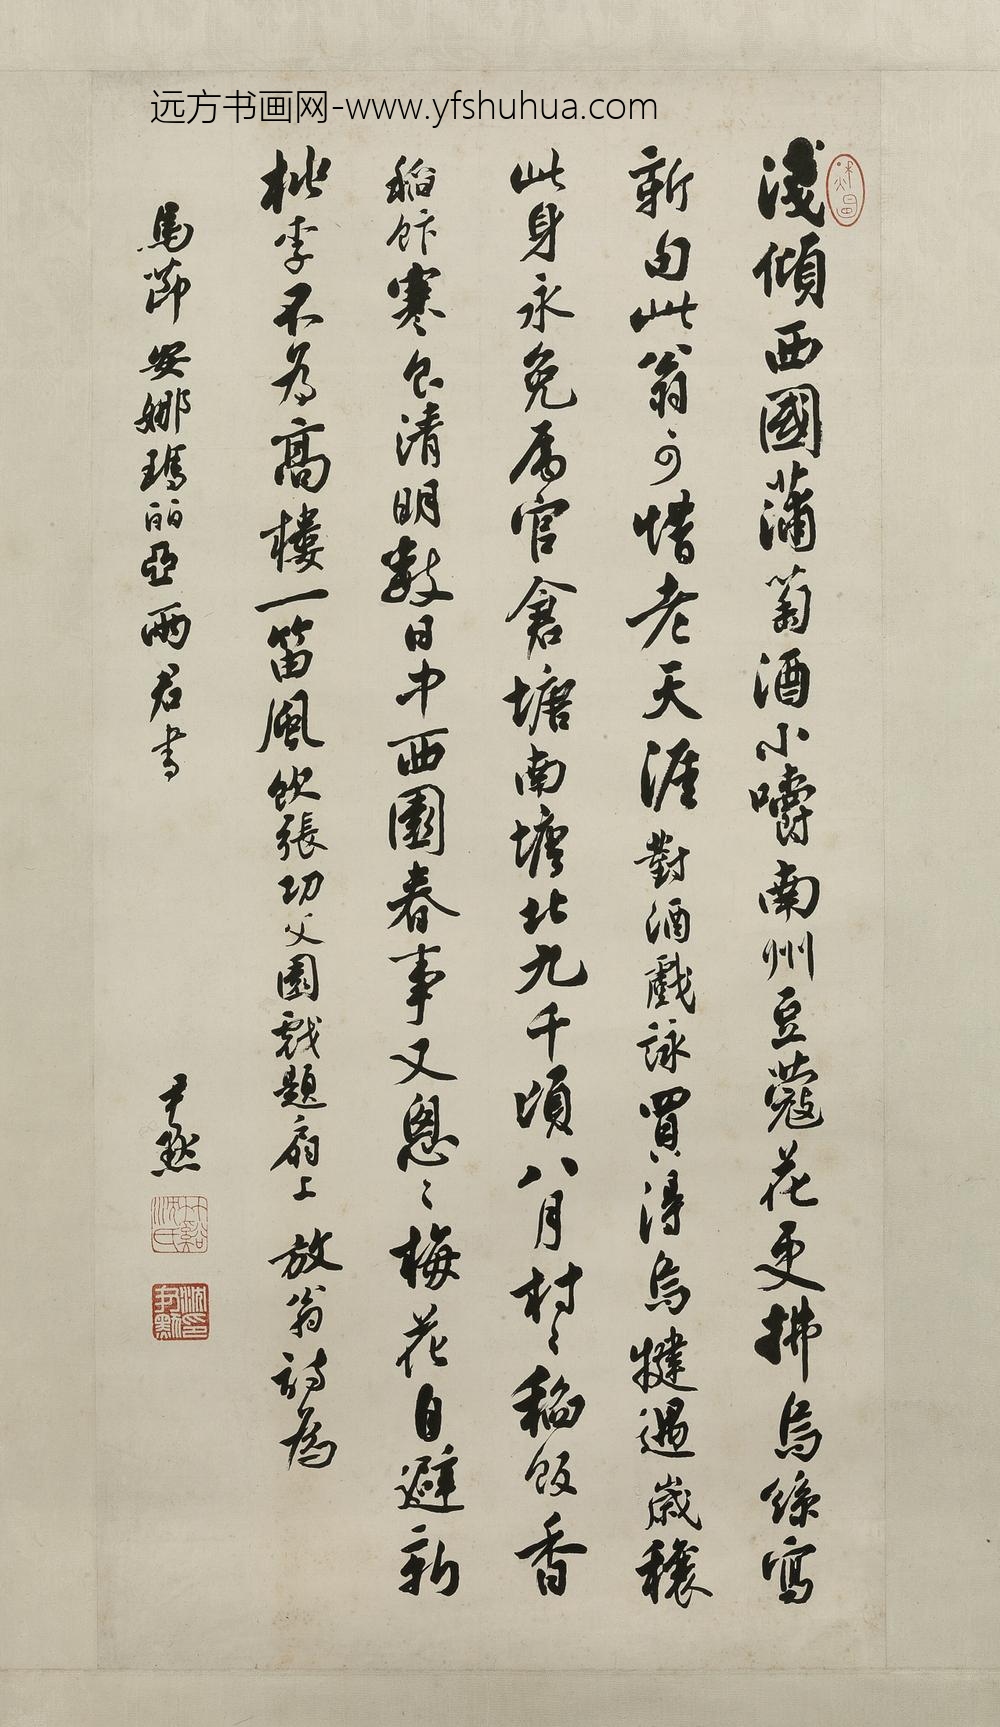 远方书画网-www.yfshuhua.com
淺傾西國蒲萄酒小嚼南州豆蔻花更拂烏絲寫
新句此翁可惜老天涯對酒戲詠買得烏犍遇歲穰
此身永免屬官倉塘南塘北九千頃八月村〻稻飯香
稻飰寒食清明數日中西園春事又悤〻梅花自避新
桃李不為高樓一笛風飲張功父園戲題扇上放翁詩為
馬節安娜瑪麗亞兩君書
尹默
竹谿沈氏
沈尹默印